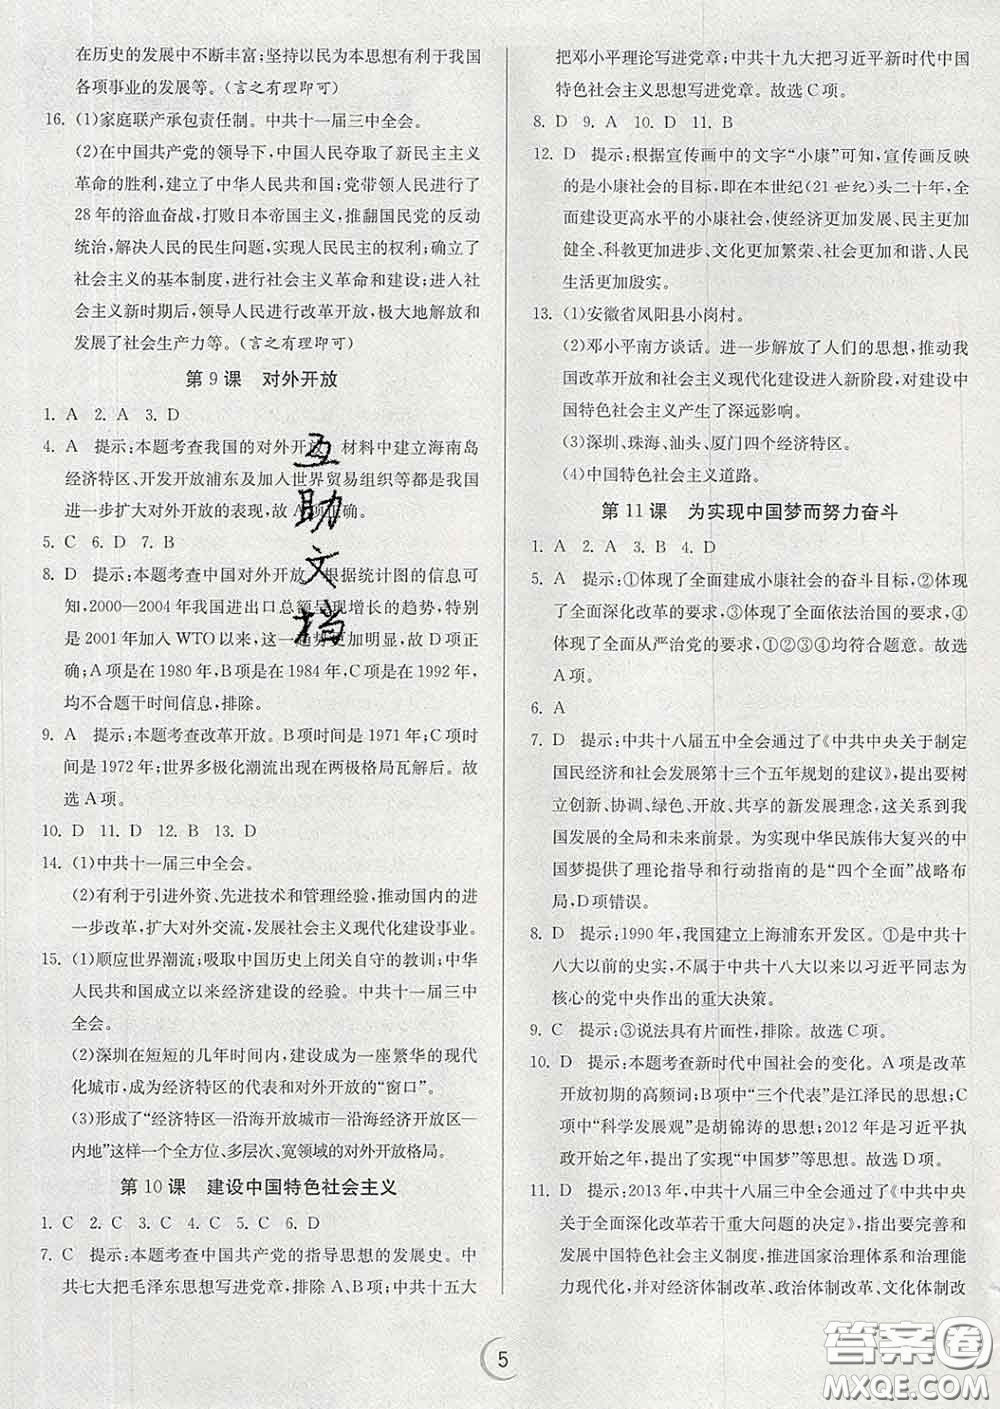 在历史的发展中不断丰富;坚持以民为本思想有利于我国
各项事业的发展等。(言之有理即可)
16. (1)家庭联产承包责任制。中共十一届三中全会。
(2)在中国共产党的领导下,中国人民夺取了新民主主义
革命的胜利,建立了中华人民共和国;党带领人民进行了
28 年的浴血奋战,打败日本帝国主义,推翻国民党的反动
统治,解决人民的民生问题,实现人民民主的权利;确立了
社会主义的基本制度,进行社会主义革命和建设;进入社
会主义新时期后,领导人民进行改革开放,极大地解放和
发展了社会生产力等。(言之有理即可)
第 9 课 对外开放
1. A 2. A 3. D
4. A 提示:本题考查我国的对外开放 材料中建立海南岛
经济特区、开发开放浦东及加入世界贸易组织等都是我国
进一步扩大对外开放的表现,故 A 项正确。
5. C 6. D 7. B
8. D 提示:本题考查中国对外开放 根据统计图的信息可
知,2000—2004 年我国进出口总额呈现增长的趋势,特别
是 2001 年加入 WTO 以来,这一趋势更加明显,故 D 项正
确;A 项是在 1980 年,B 项是在 1984 年,C 项是在 1992 年,
均不合题干时间信息,排除。
9. A 提示:本题考查改革开放。B 项时间是 1971 年;C 项
时间是 1972 年;世界多极化潮流出现在两极格局瓦解后。故
选 A 项。
10. D 11. D 12. B 13. D
14. (1)中共十一届三中全会。
(2)有利于引进外资、先进技术和管理经验,推动国内的进
一步改革,扩大对外交流,发展社会主义现代化建设事业。
15. (1)顺应世界潮流;吸取中国历史上闭关自守的教训;中华
人民共和国成立以来经济建设的经验。中共十一届三中
全会。
(2)深圳在短短的几年时间内,建设成为一座繁华的现代
化城市,成为经济特区的代表和对外开放的“窗口”。
(3)形成了“经济特区—沿海开放城市—沿海经济开放区—
内地”这样一个全方位、多层次、宽领域的对外开放格局。
第 10 课 建设中国特色社会主义
1. C 2. C 3. C 4. C 5. C 6. D
7. C 提示:本题考查中国共产党的指导思想的发展史。中
共七大把毛泽东思想写进党章,排除 A、B 项;中共十五大
把邓小平理论写进党章;中共十九大把习近平新时代中国
特色社会主义思想写进党章。故选 C 项。
8. D 9. A 10. D 11. B
12. D 提示:根据宣传画中的文字“小康”可知,宣传画反映
的是小康社会的目标,即在本世纪(21 世纪)头二十年,全
面建设更高水平的小康社会,使经济更加发展、民主更加
健全、科教更加进步、文化更加繁荣、社会更加和谐、人民
生活更加殷实。
13. (1)安徽省凤阳县小岗村。
(2)邓小平南方谈话。进一步解放了人们的思想,推动我
国改革开放和社会主义现代化建设进入新阶段,对建设中
国特色社会主义产生了深远影响。
(3)深圳、珠海、汕头、厦门四个经济特区。
(4)中国特色社会主义道路。
第 11 课 为实现中国梦而努力奋斗
1. A 2. A 3. B 4. D
5. A 提示:①体现了全面建成小康社会的奋斗目标,②体现
了全面深化改革的要求,③体现了全面依法治国的要求,④
体现了全面从严治党的要求,①②③④均符合题意。故选
A 项。
6. A
7. D 提示:中共十八届五中全会通过了《中共中央关于制定
国民经济和社会发展第十三个五年规划的建议》,提出要树
立创新、协调、绿色、开放、共享的新发展理念,这关系到我
国发展的全局和未来前景。为实现中华民族伟大复兴的中
国梦提供了理论指导和行动指南的是“四个全面”战略布
局,D 项错误。
8. D 提示:1990 年,我国建立上海浦东开发区。①是中共十
八大以前的史实,不属于中共十八大以来以习近平同志为
核心的党中央作出的重大决策。
9. C 提示:③说法具有片面性,排除。故选 C 项。
10. D 提示:本题考查新时代中国社会的变化。A 项是改革
开放初期的高频词;B 项中“三个代表”是江泽民的思想;C
项中“科学发展观”是胡锦涛的思想;2012 年是习近平执
政开始之年,提出了实现“中国梦”等思想。故选 D 项。
11. D 提示:2013 年,中共十八届三中全会通过了《中共中央
关于全面深化改革若干重大问题的决定》,指出要完善和
发展中国特色社会主义制度,推进国家治理体系和治理能
力现代化,并对经济体制改革、政治体制改革、文化体制改
互助文档
5
答案圈
MXQE.COM